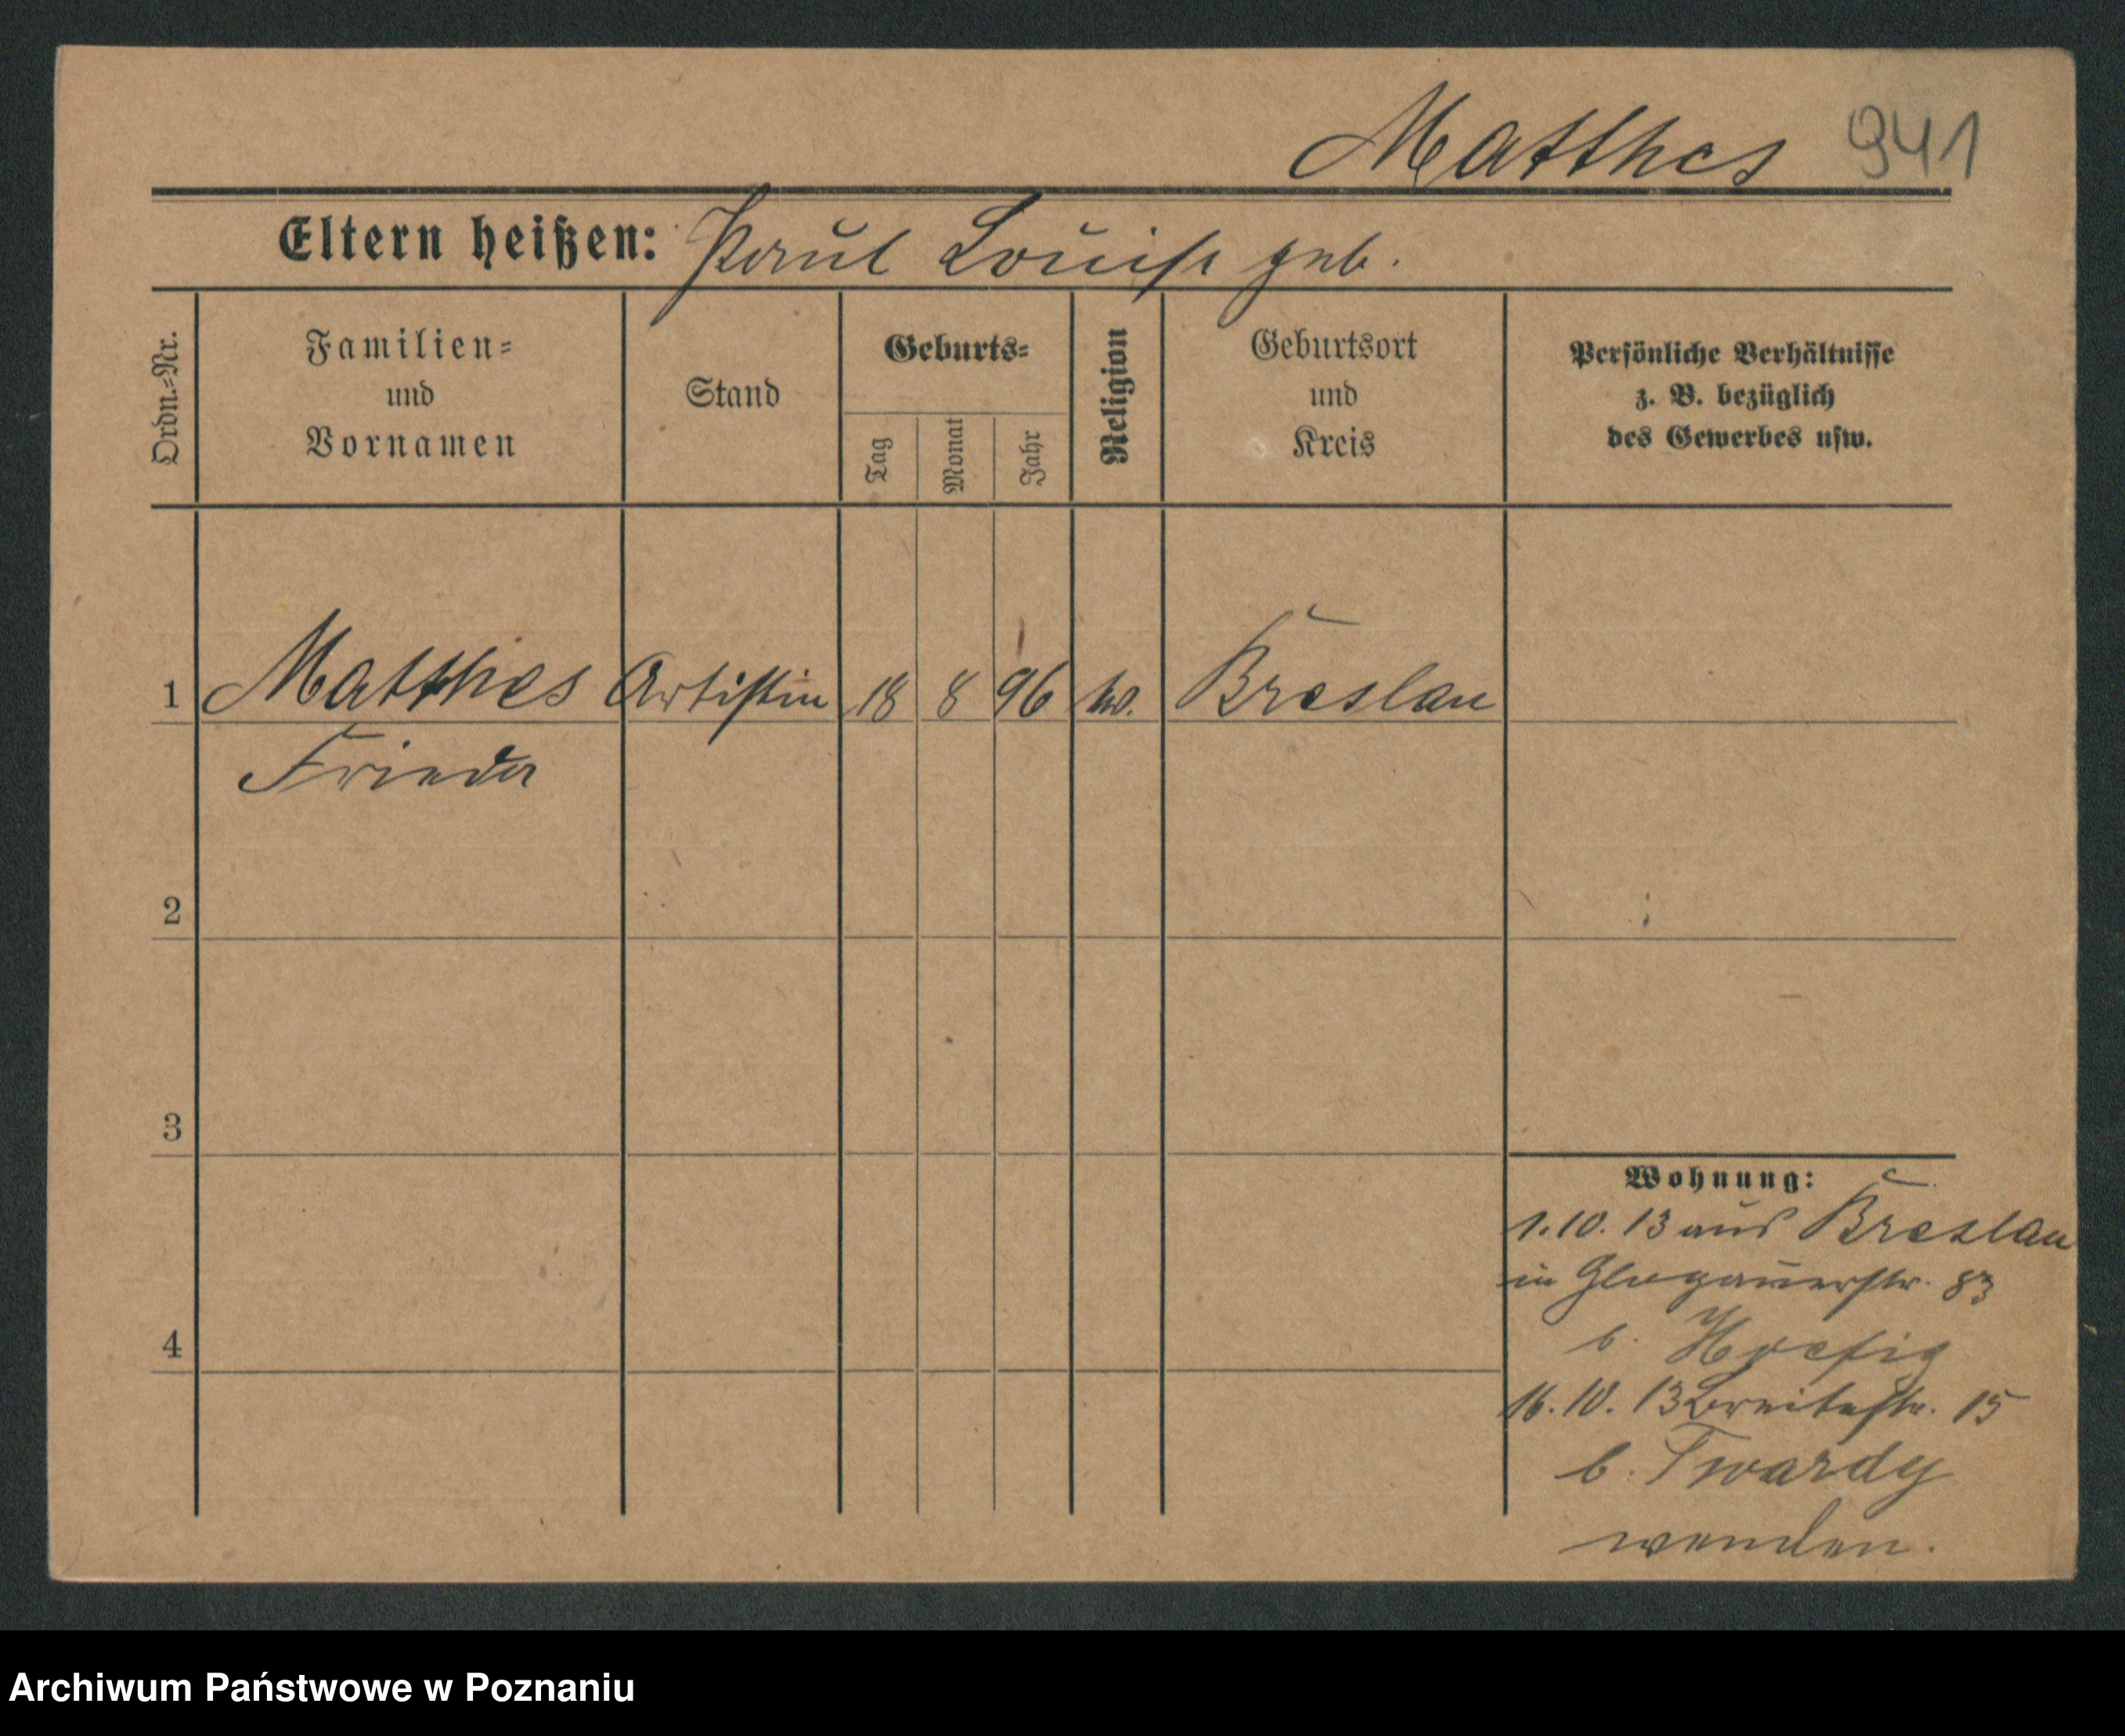 Matthes 941
Eltern heißen: Paul Louise geb.
Ordn.=Nr.
Familien=
und
Vornamen
Stand
Geburts=
Tag
Monat
Jahr
Religion
Geburtsort
und
Kreis
Persönliche Verhältnisse
z. B. bezüglich
des Gewerbes usw.
1 Matthes Artistin 18 8 96 Breslau
Frieda
2
3
4
Wohnung:
1.10.13 aus Breslau
in Glogauerstr. 83
b.
16.10.13 Breitestr. 15
b. Twardy
wenden.
Archiwum Państwowe w Poznaniu